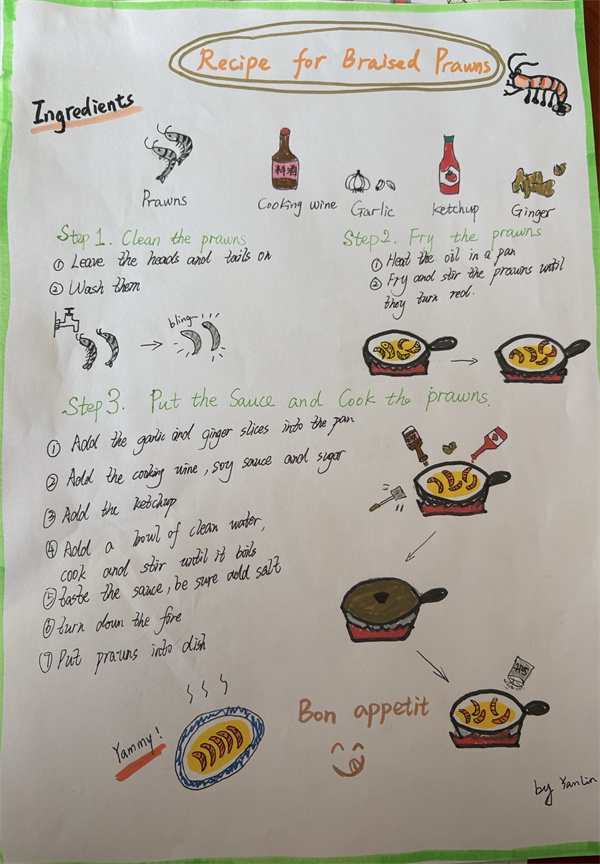 Recipe for Braised Prawns
Ingredients
料酒
Prawns
Cooking wine
Garlic
ketchup
Ginger
Step 1. Clean the prawns
① Leave the heads and tails on
② Wash them
bling~
Step 2. Fry the prawns
① Heat the oil in a pan
② Fry and stir the prawns until
they turn red.
Step 3. Put the Sauce and Cook the prawns.
① Add the garlic and ginger slices into the pan
② Add the cooking wine, soy sauce and sugar
③ Add the ketchup
④ Add a bowl of clean water,
cook and stir until it boils
⑤ taste the sauce, be sure add salt
⑥ turn down the fire
⑦ Put prawns into dish
Yammy!
Bon appetit
by YanLin